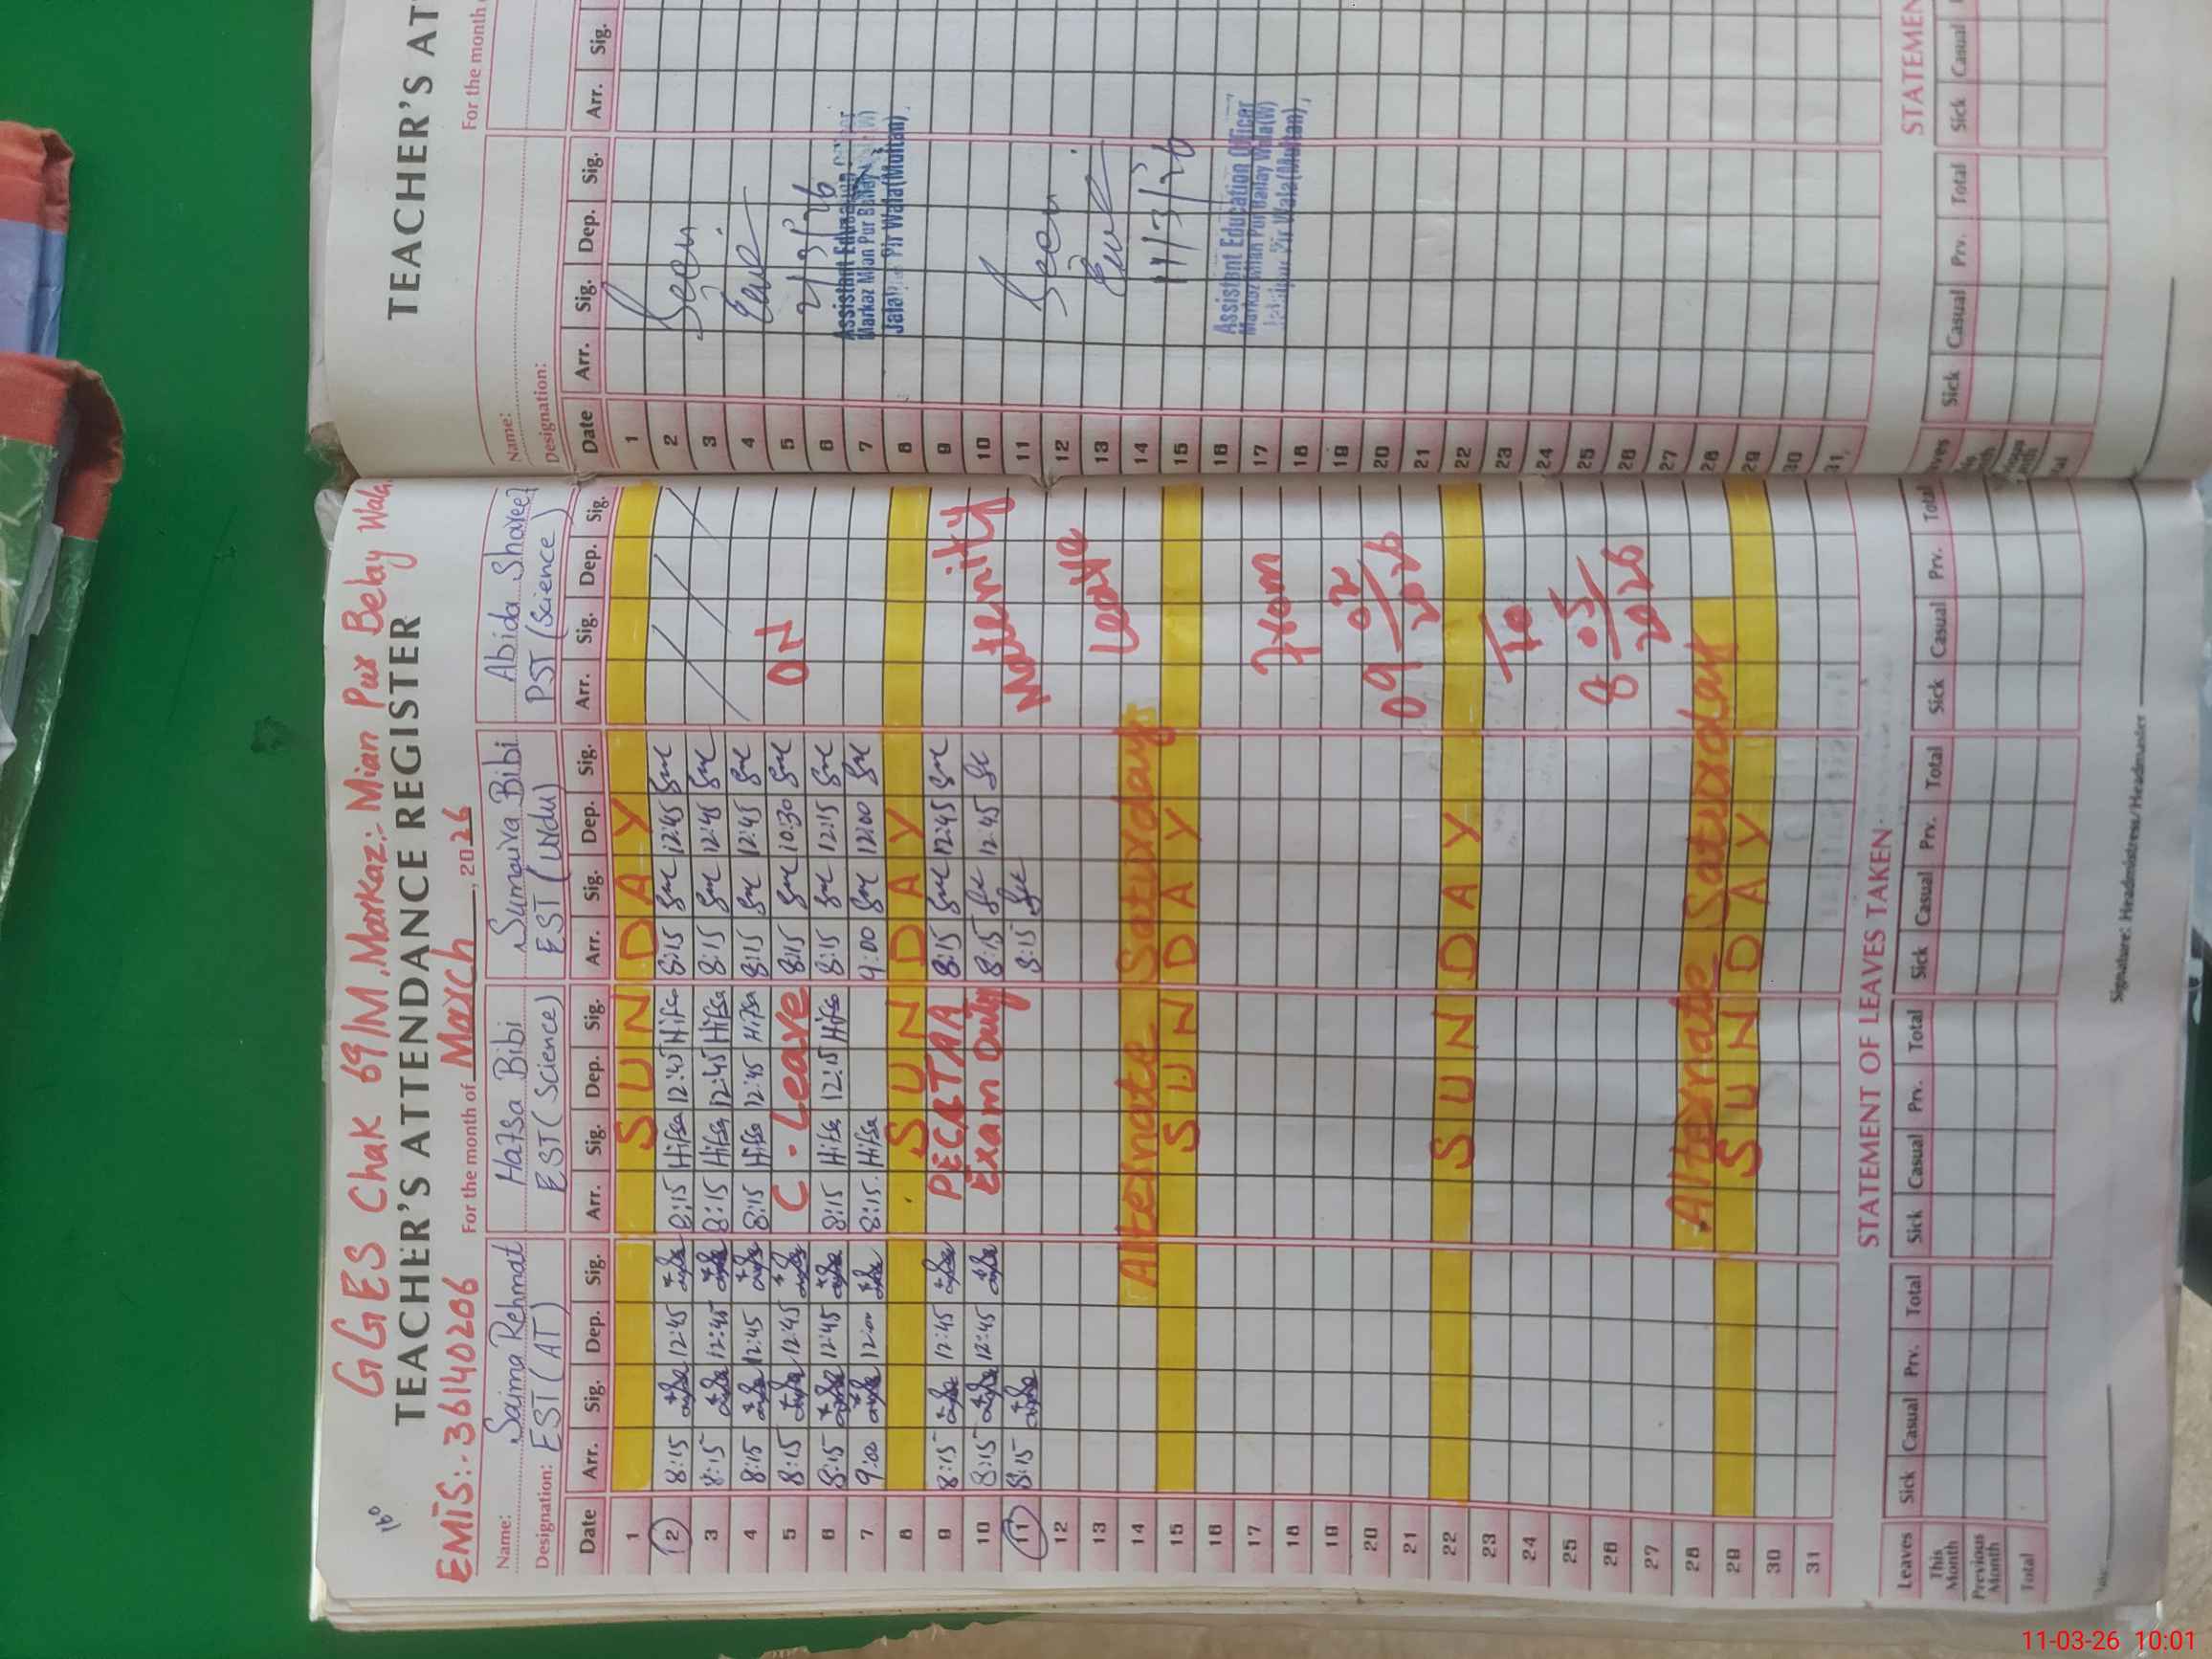 160
GGES Chak 69/M, Markaz:- Mian Pur Belay Wala
TEACHER'S ATTENDANCE REGISTER
EMIS:- 36140206 For the month of March, 2026
Name: Saima Rehmat Hafsa Bibi Sumaira Bibi Abida Shareef
Designation: EST (AT) EST (Science) EST (Urdu) PST (Science)
Date Arr. Sig. Dep. Sig. Arr. Sig. Dep. Sig. Arr. Sig. Dep. Sig. Arr. Sig. Dep. Sig.
1 SUNDAY
2 8:15 12:45 8:15 Hifsa 12:45 Hifsa 8:15 12:45
3 8:15 12:45 8:15 Hifsa 12:45 Hifsa 8:15 12:45
4 8:15 12:45 8:15 Hifsa 12:45 Hifsa 8:15 12:45
5 8:15 12:45 C. Leave 8:15 10:30 ON
6 8:15 12:45 8:15 Hifsa 12:15 Hifsa 8:15 12:15
7 9:00 12:00 8:15 Hifsa 9:00 12:00
8 SUNDAY
9 8:15 12:45 PECATAA 8:15 12:45
10 8:15 12:45 Exam Duty 8:15 12:45 Maternity
11 8:15 8:15
12 Leave
13
14 Alternate Saturday
15 SUNDAY
16
17 From
18
19
20 09/02/2026
21
22 SUNDAY
23 To
24
25
26 8/05/2026
27
28 Alternate Saturday
29 SUNDAY
30
31
STATEMENT OF LEAVES TAKEN
Leaves Sick Casual Prv. Total Sick Casual Prv. Total Sick Casual Prv. Total Sick Casual Prv. Total
This Month
Previous Month
Total
Signature: Headmistress/Headmaster
TEACHER'S AT
For the month
Name:
Designation:
Date Arr. Sig. Dep. Sig. Arr. Sig.
1
2 Seen
3
4
5 2/3/26
6 Assistant Education Officer
7 Markaz Mian Pur Bailay Wala(W)
8 Jalalpur Pir Wala(Multan)
9
10
11 Seen
12
13
14 11/3/26
15
16 Assistant Education Officer
17 Markaz Mian Pur Bailay Wala(W)
18 Jalalpur Pir Wala(Multan)
19
20
21
22
23
24
25
26
27
28
29
30
31
STATEMEN
Sick Casual Prv. Total Sick Casual
11-03-26 10:01